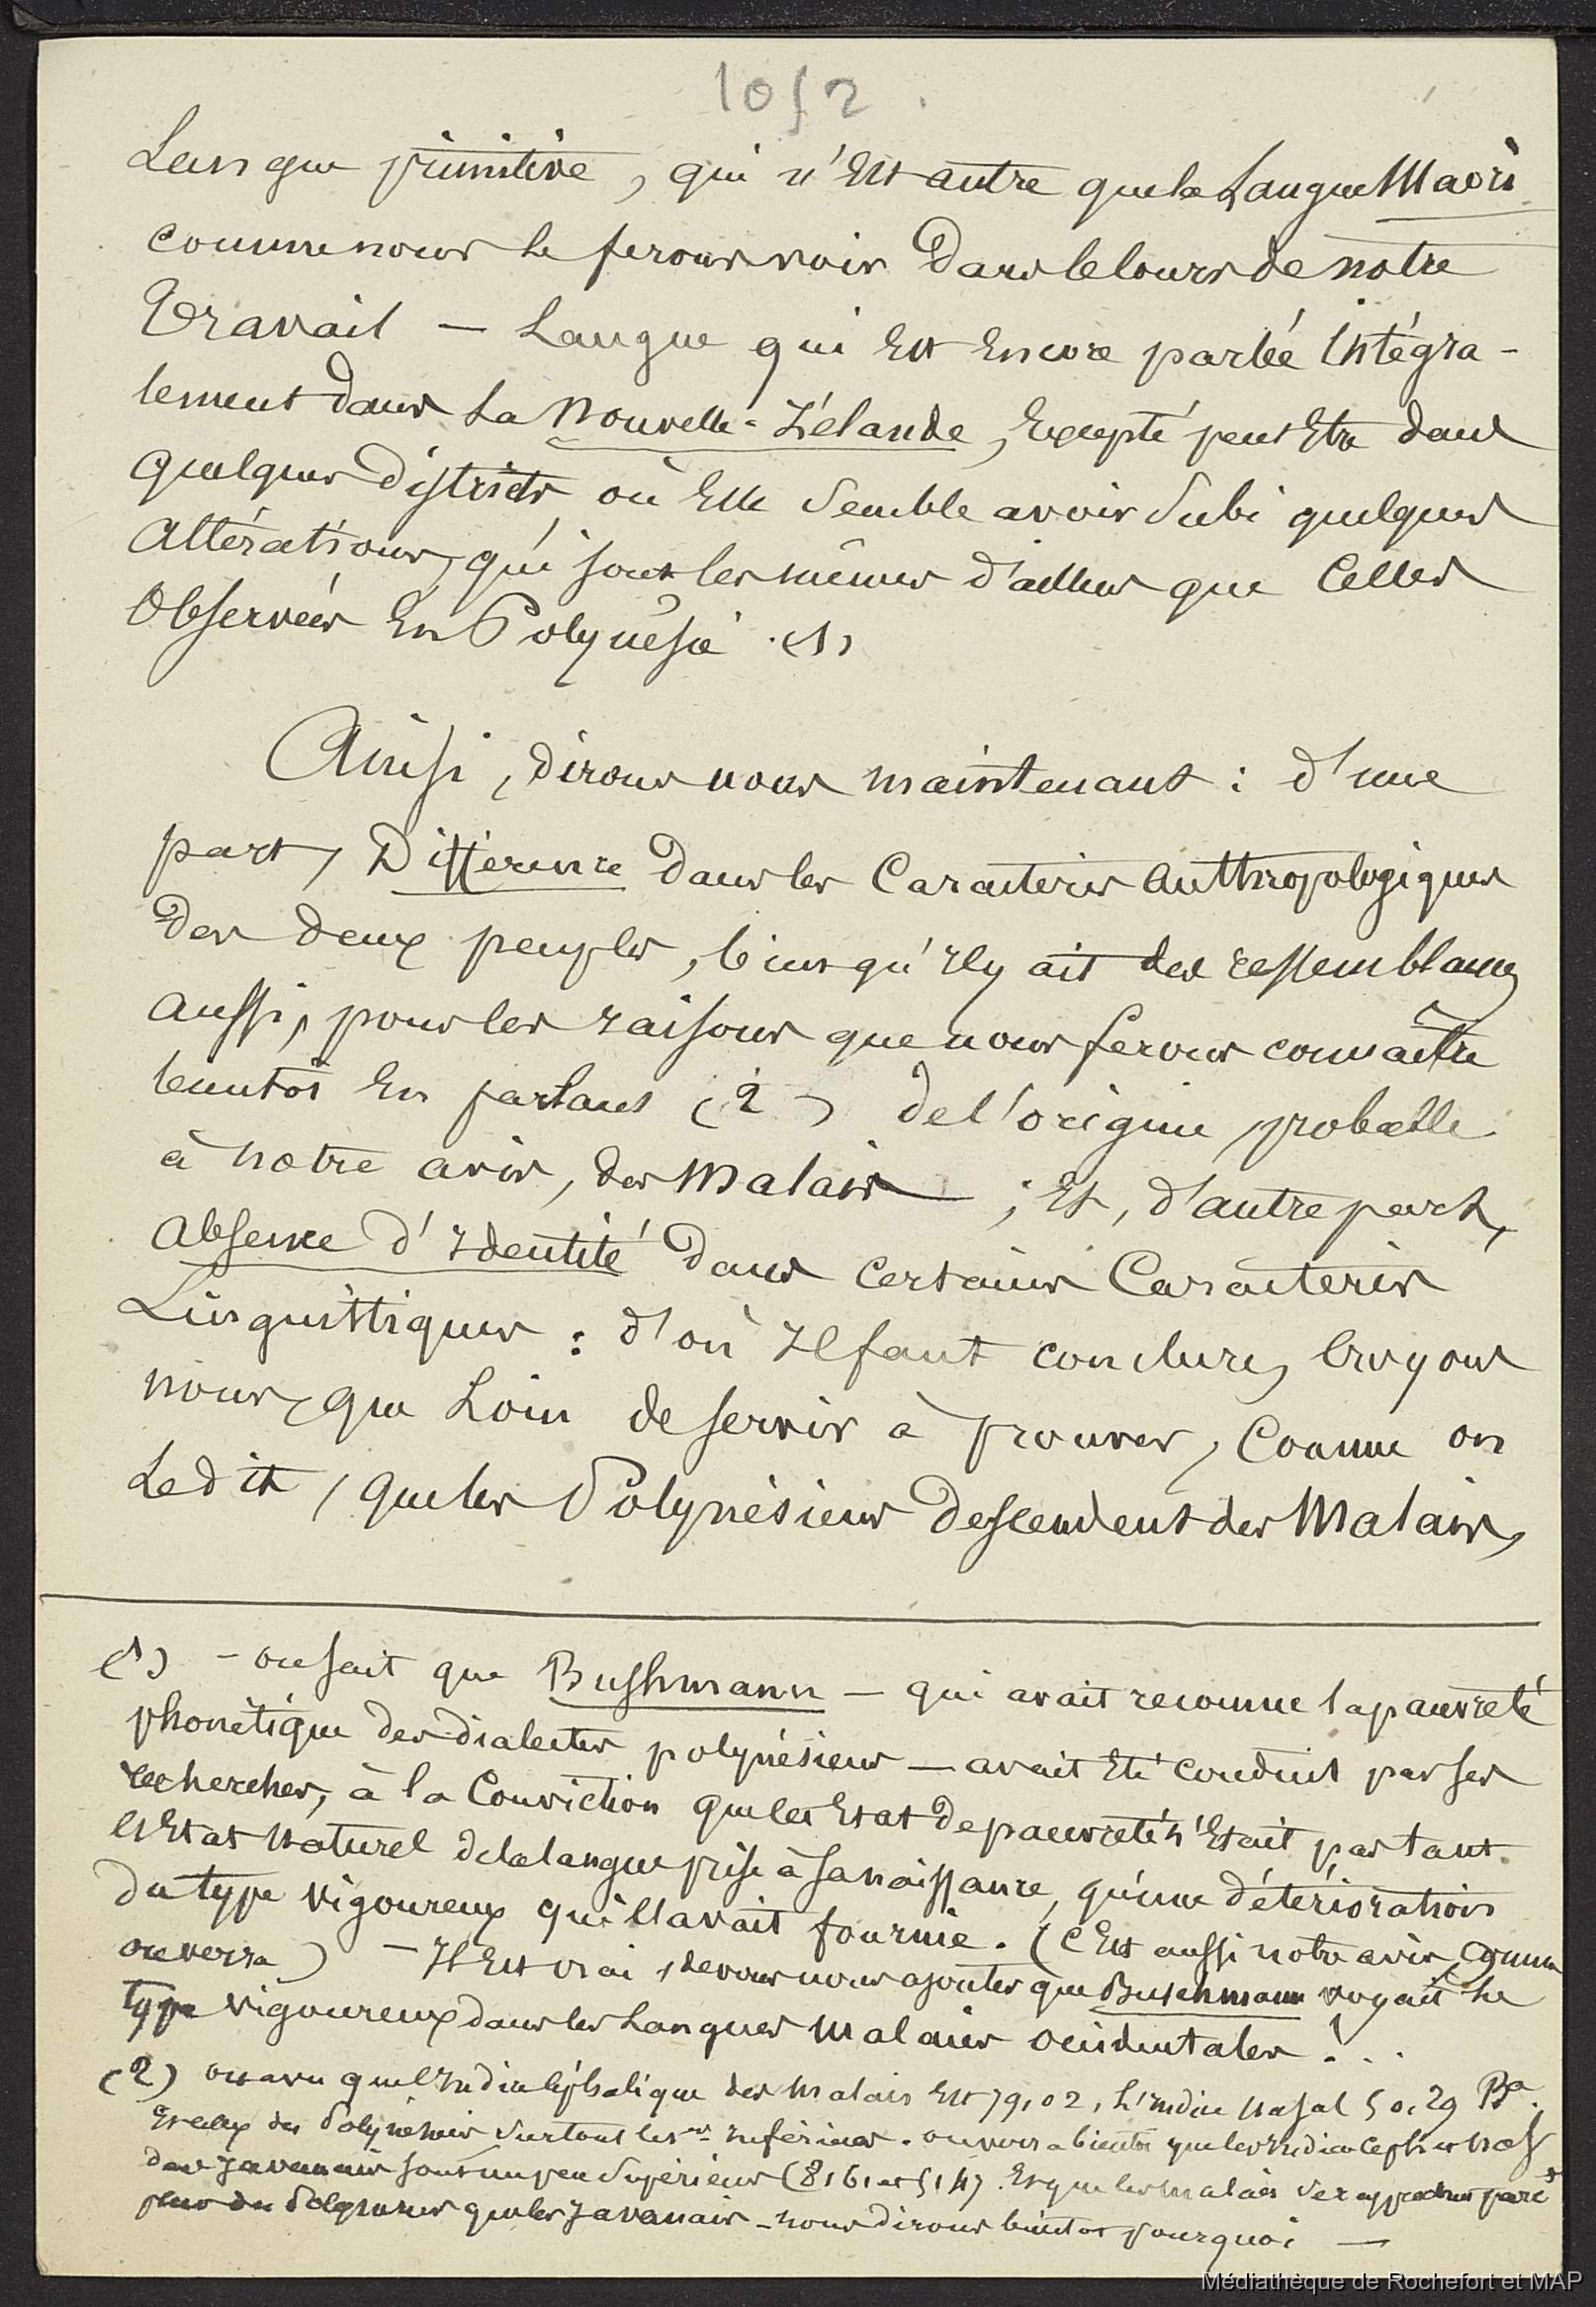 1052.
Langue primitive, qui n'est autre que la Langue Maori
comme nous le ferons voir dans le cours de notre
travail — Langue qui est encore parlée intégra-
lement dans la Nouvelle-Zélande, excepté peut être dans
quelques districts où elle semble avoir subi quelques
altérations, qui sont les mêmes d'ailleurs que celles
observées en Polynésie. (1)
Ainsi, dirons nous maintenant : d'une
part, Différence dans les Caractères anthropologiques
des deux peuples, bien qu'il y ait des ressemblances
aussi, pour les raisons que nous ferons connaître
bientôt en parlant (2) de l'origine probable
à notre avis, des Malais ; et, d'autre part,
absence d'identité dans certains Caractères
Linguistiques : d'où il faut conclure, croyons
nous, que loin de servir à prouver, comme on
le dit, que les Polynésiens descendent des Malais,
(1) - on sait que Bushmann — qui avait reconnu la pauvreté
phonétique des dialectes polynésiens — avait été conduit par ses
recherches, à la Conviction que cet état de pauvreté n'était pas tant
l'état naturel de la langue prise à sa naissance, qu'une détérioration
du type vigoureux qui l'avait fournie. (C'est aussi notre avis, comme
on verra) — Il est vrai, devons nous ajouter que Buschmann voyait le
type vigoureux dans les Langues malaises occidentales !...
(2) on a vu que l'indice céphalique des Malais est 79,02, l'indice nasal 50,29
et ceux des Polynésiens surtout les inférieurs. on verra bientôt que les indices céph et nas
des Javanais sont un peu supérieurs (81,61 et 51,47). et que les malais se rapprochent
plus des Polynésiens que les Javanais - nous dirons bientôt pourquoi —
Médiathèque de Rochefort et MAP